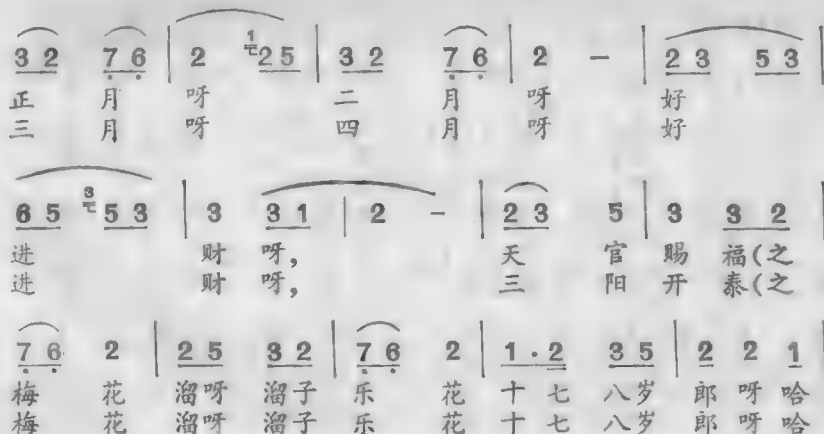 3 2 7 6 | 2 1 2 5 | 3 2 7 6 | 2 — | 2 3 5 3 |
正 月 呀 二 月 呀 好
三 月 呀 四 月 呀 好
6 5 3 5 3 | 3 3 1 | 2 - | 2 3 5 | 3 3 2
进 财 呀, 天 官 赐 福(之
进 财 呀, 三 阳 开 泰(之
7 6 2 | 2 5 3 2 | 7 6 2 | 1 · 2 3 5 | 2 2 1
梅 花 溜呀 溜子 乐 花 十 七 八岁 郎 呀 哈
梅 花 溜呀 溜子 乐 花 十 七 八岁 郎 呀 哈